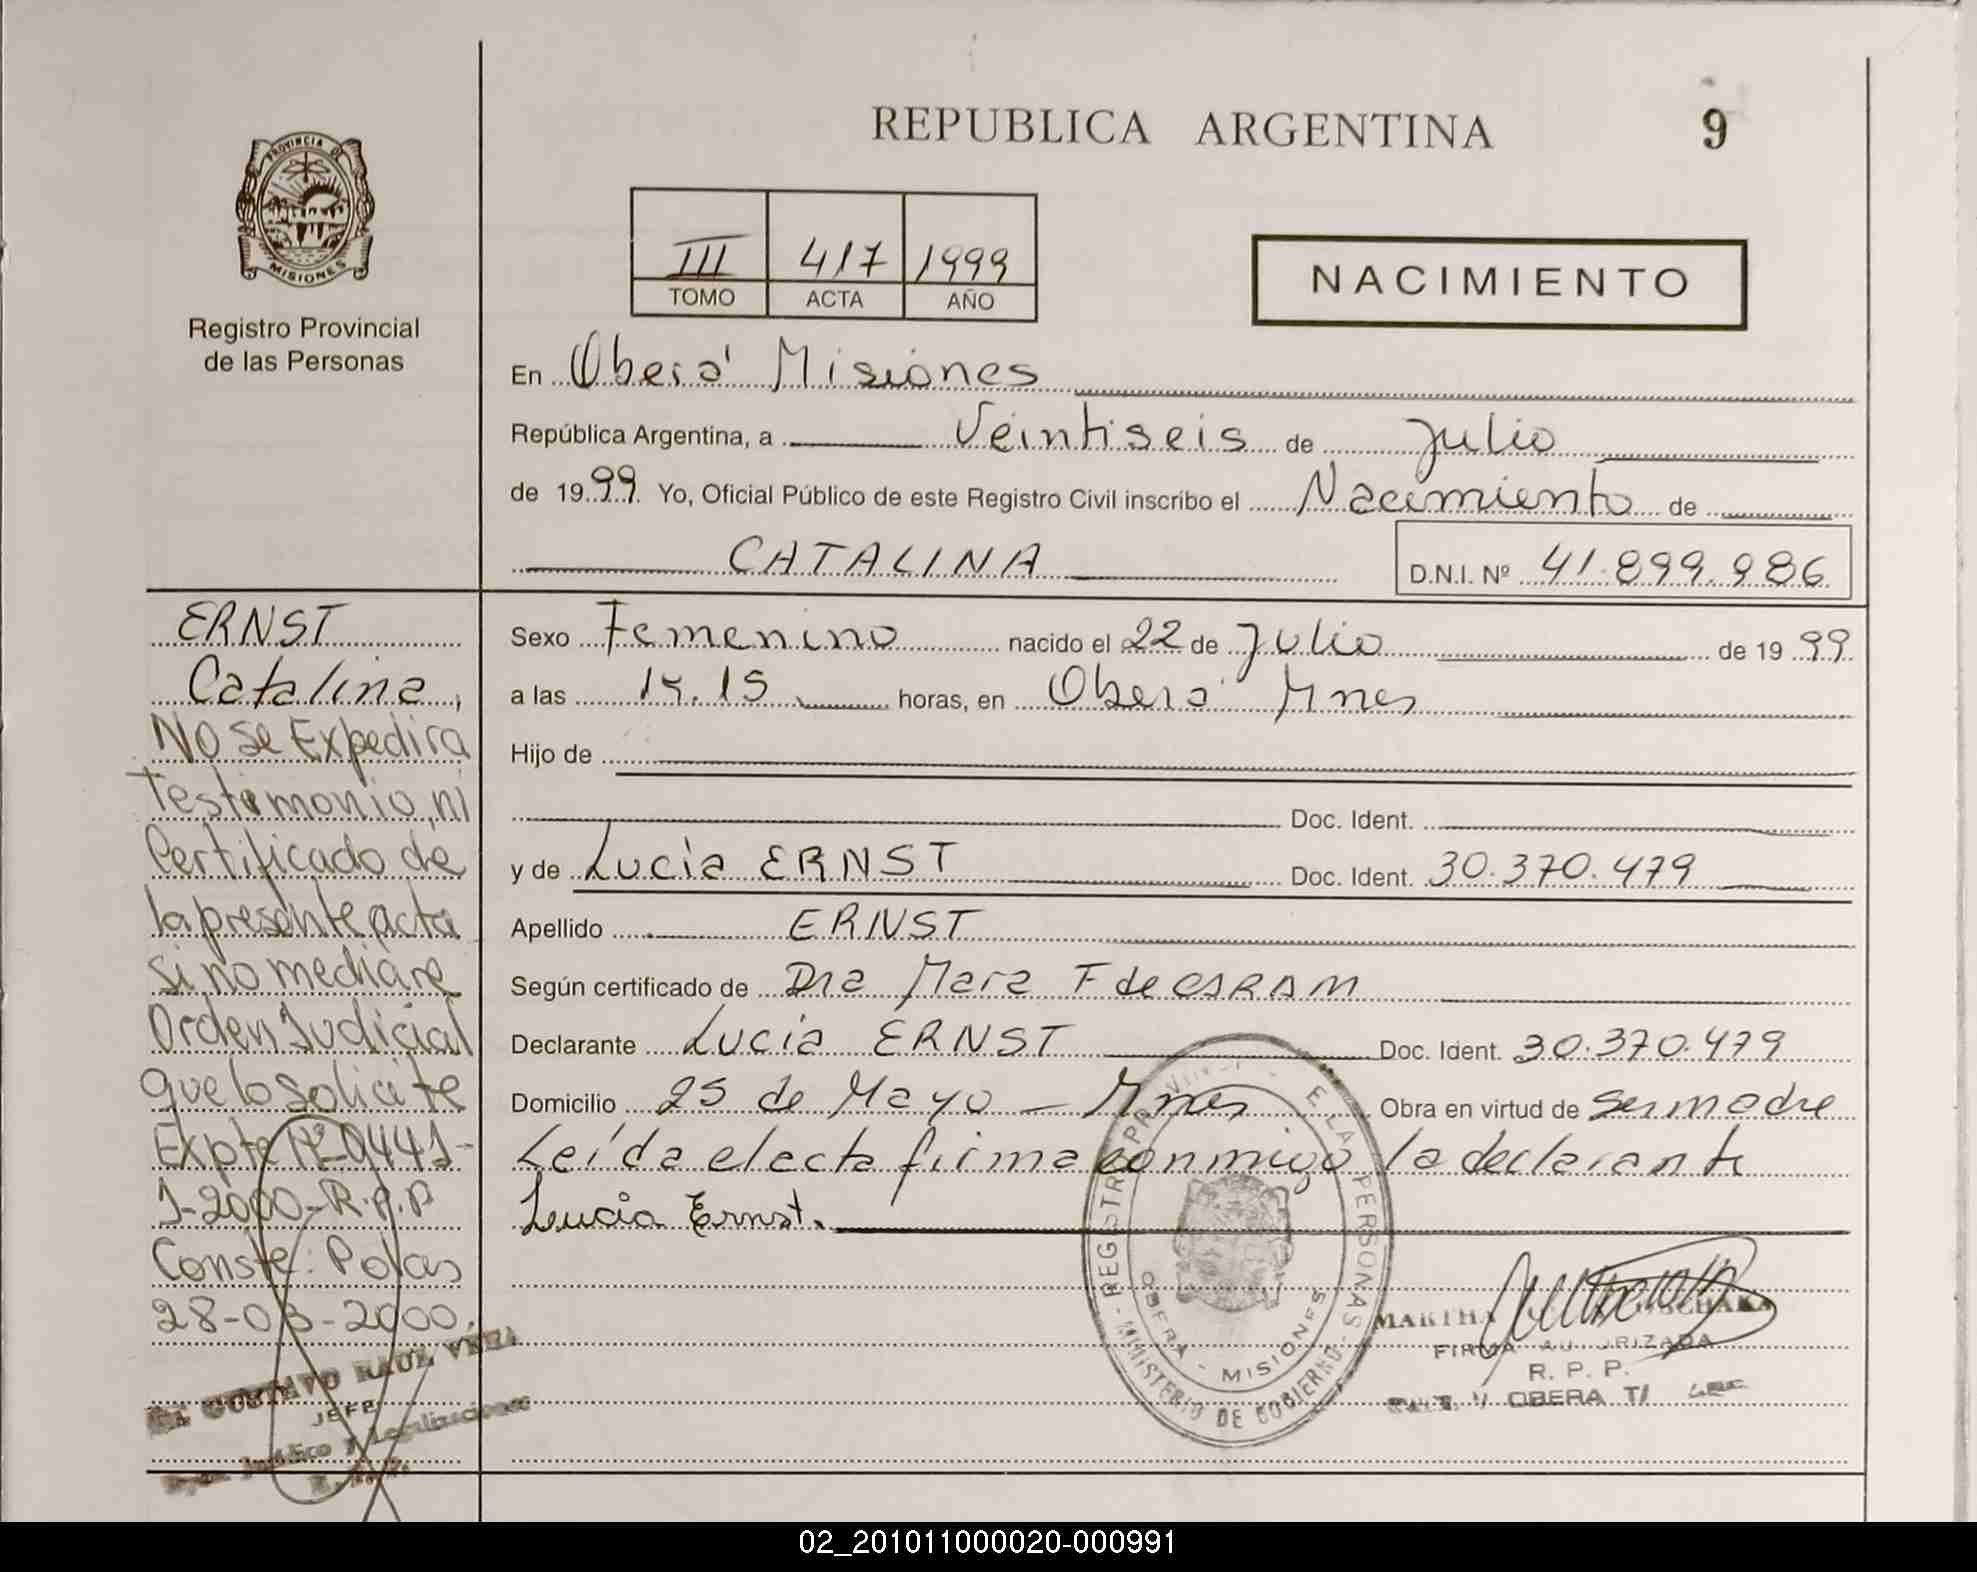 REPUBLICA ARGENTINA
9
PROVINCIA DE
MISIONES
Registro Provincial
de las Personas
III 417 1999
TOMO ACTA AÑO
NACIMIENTO
En Oberá Misiones
República Argentina, a Veintiseis de Julio
de 1999. Yo, Oficial Público de este Registro Civil inscribo el Nacimiento de
CATALINA D.N.I. Nº 41.899.986
Sexo Femenino nacido el 22 de Julio de 1999
a las 14.15 horas, en Oberá Mnes
Hijo de
Doc. Ident.
y de Lucia ERNST Doc. Ident. 30.370.479
Apellido ERNST
Según certificado de Dra Mara F de
Declarante Lucia ERNST Doc. Ident. 30.370.479
Domicilio 25 de Mayo - Mnes Obra en virtud de ser madre
Leída el acta firma conmigo la declarante
Lucia Ernst.
ERNST
Catalina,
No se Expedira
Testimonio, ni
Certificado de
la presente acta
si no mediare
Orden Judicial
que lo solicite
Expte Nº 9441-
J-2000-R.P.P
Conste: Pdas
28-03-2000.
GUSTAVO RAUL VERA
JEFE
Juridico y Legalizaciones
R.P.P.
REGISTRO PROVINCIAL DE LAS PERSONAS
MINISTERIO DE GOBIERNO
OBERA - MISIONES
MARTHA
FIRMA AUTORIZADA
R. P. P.
OBERA
02_201011000020-000991